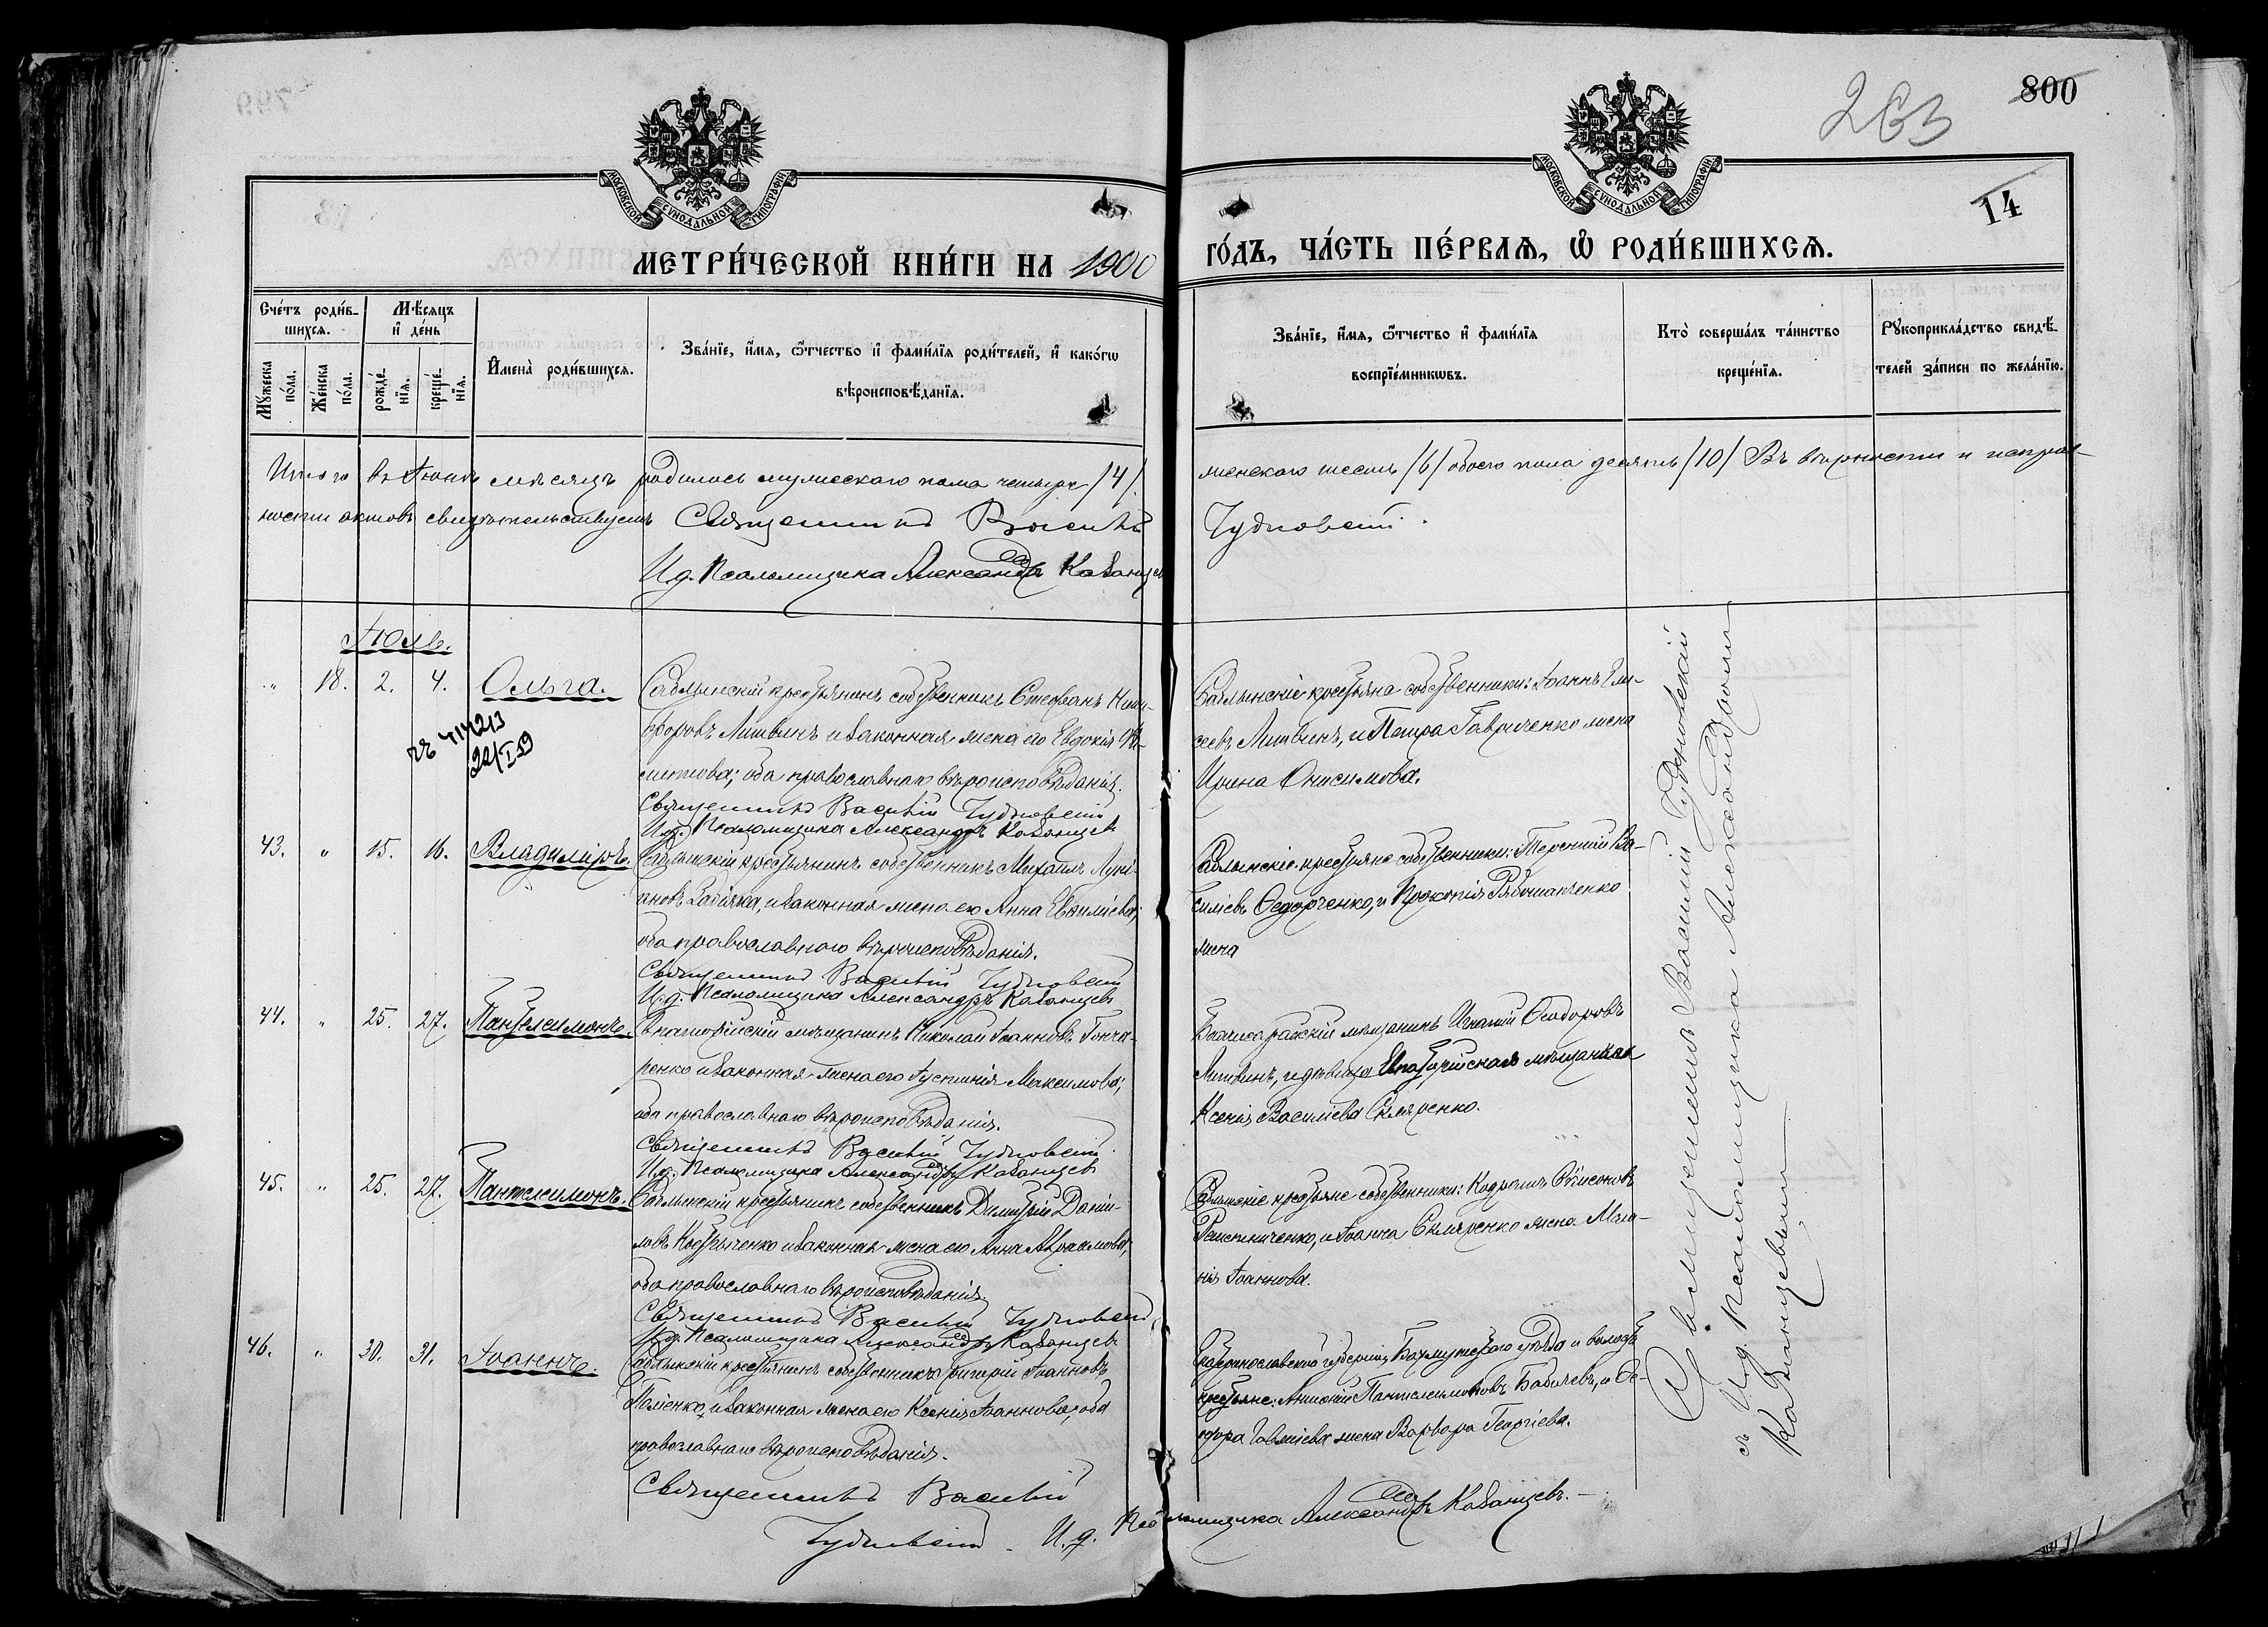 263
800
МОСКОВСКОЙ СѴНОДАЛЬНОЙ ТИПОГРАФІИ
МОСКОВСКОЙ СѴНОДАЛЬНОЙ ТИПОГРАФІИ
14
МЕТРИ́ЧЕСКОЙ КНИ́ГИ НА 1900
ГО́ДЪ, ЧА́СТЬ ПЕ́РВАѦ, Ѡ РОДИ́ВШИХСѦ.
Сче́тъ роди́вшихсѧ.
Мꙋ́жеска по́ла.
Же́нска по́ла.
Мѣ́сѧцъ и҆ де́нь
рожде́нїѧ.
креще́нїѧ.
И҆мена̀ роди́вшихсѧ.
Зва́нїе, и҆́мѧ, ѻ҆́тчество и҆ фами́лїѧ роди́телей, и҆ како́гѡ
вѣроисповѣ́данїѧ.
Зва́нїе, и҆́мѧ, ѻ҆́тчество и҆ фами́лїѧ
воспрїе́мникѡвъ.
Кто̀ соверша́лъ та́инство
креще́нїѧ.
Рꙋкоприкла́дство свидѣ́телей за́писи по жела́нїю.
Итого въ Іюнѣ мѣсяцѣ родилось мужескаго пола четыре /4/
женскаго шесть /6/ обоего пола десять /10/ Въ вѣрности и исправ-
ности актовъ свидѣтельствуемъ Священникъ Василій
Чудновскій.
И.д. Псаломщика Александръ Казанцевъ
Іюль.
" 18. 2. 4. Ольга.
22/I 59
Саблынскій крестьянинъ собственникъ Стефанъ Ники-
форовъ Литвинъ и законная жена его Евдокія
оба православнаго вѣроисповѣданія.
Священникъ Василій Чудновскій
И.д. Псаломщика Александръ Казанцевъ
Саблынскіе крестьяне собственники: Іоаннъ Ели-
сеевъ Литвинъ, и Петра Гавриченко жена
Ирина Онисимова.
43. " 15. 16. Владиміръ.
Саблынскій крестьянинъ собственникъ Михаилъ Луки-
ановъ и законная жена его Анна
оба православнаго вѣроисповѣданія.
Священникъ Василій Чудновскій
И.д. Псаломщика Александръ Казанцевъ
Саблынскіе крестьяне собственники: Терентій Ва-
силіевъ Федорченко, и Прокопія Рябошапченко
жена
44. " 25. 27. Пантелеимонъ.
Евпаторійскій мѣщанинъ Николай Іоанновъ Гонча-
ренко и законная жена его Іустинія Максимова;
оба православнаго вѣроисповѣданія.
Священникъ Василій Чудновскій
И.д. Псаломщика Александръ Казанцевъ
Бахчисарайскій мѣщанинъ Игнатій Ѳеодоровъ
Литвинъ, и дѣвица Евпаторійская мѣщанка
Ксенія Василіева Скляренко.
45. " 25. 27. Пантелеимонъ.
Саблынскій крестьянинъ собственникъ Димитрій Дани-
ловъ и законная жена его Анна Авраамова;
оба православнаго вѣроисповѣданія.
Священникъ Василій Чудновскій
И.д. Псаломщика Александръ Казанцевъ
Саблынскіе крестьяне собственники: Кодратъ
и Іоанна Скляренко жена Мела-
нія Іоаннова.
46. " 30. 31. Іоаннъ.
Саблынскій крестьянинъ собственникъ Григорій Іоанновъ
и законная жена его Ксенія Іоаннова; оба
православнаго вѣроисповѣданія.
Екатеринославской губерніи, Бахмутскаго уѣзда и волости
крестьяне: Антоній Пантелеимоновъ Бабичевъ, и Ѳе-
одора жена Варвара Георгіева.
Священникъ Василій
Чудновскій. И.д. Псаломщика Александръ Казанцевъ.
Священникъ Василій Чудновскій
съ И.д. Псаломщика Александромъ
Казанцевымъ